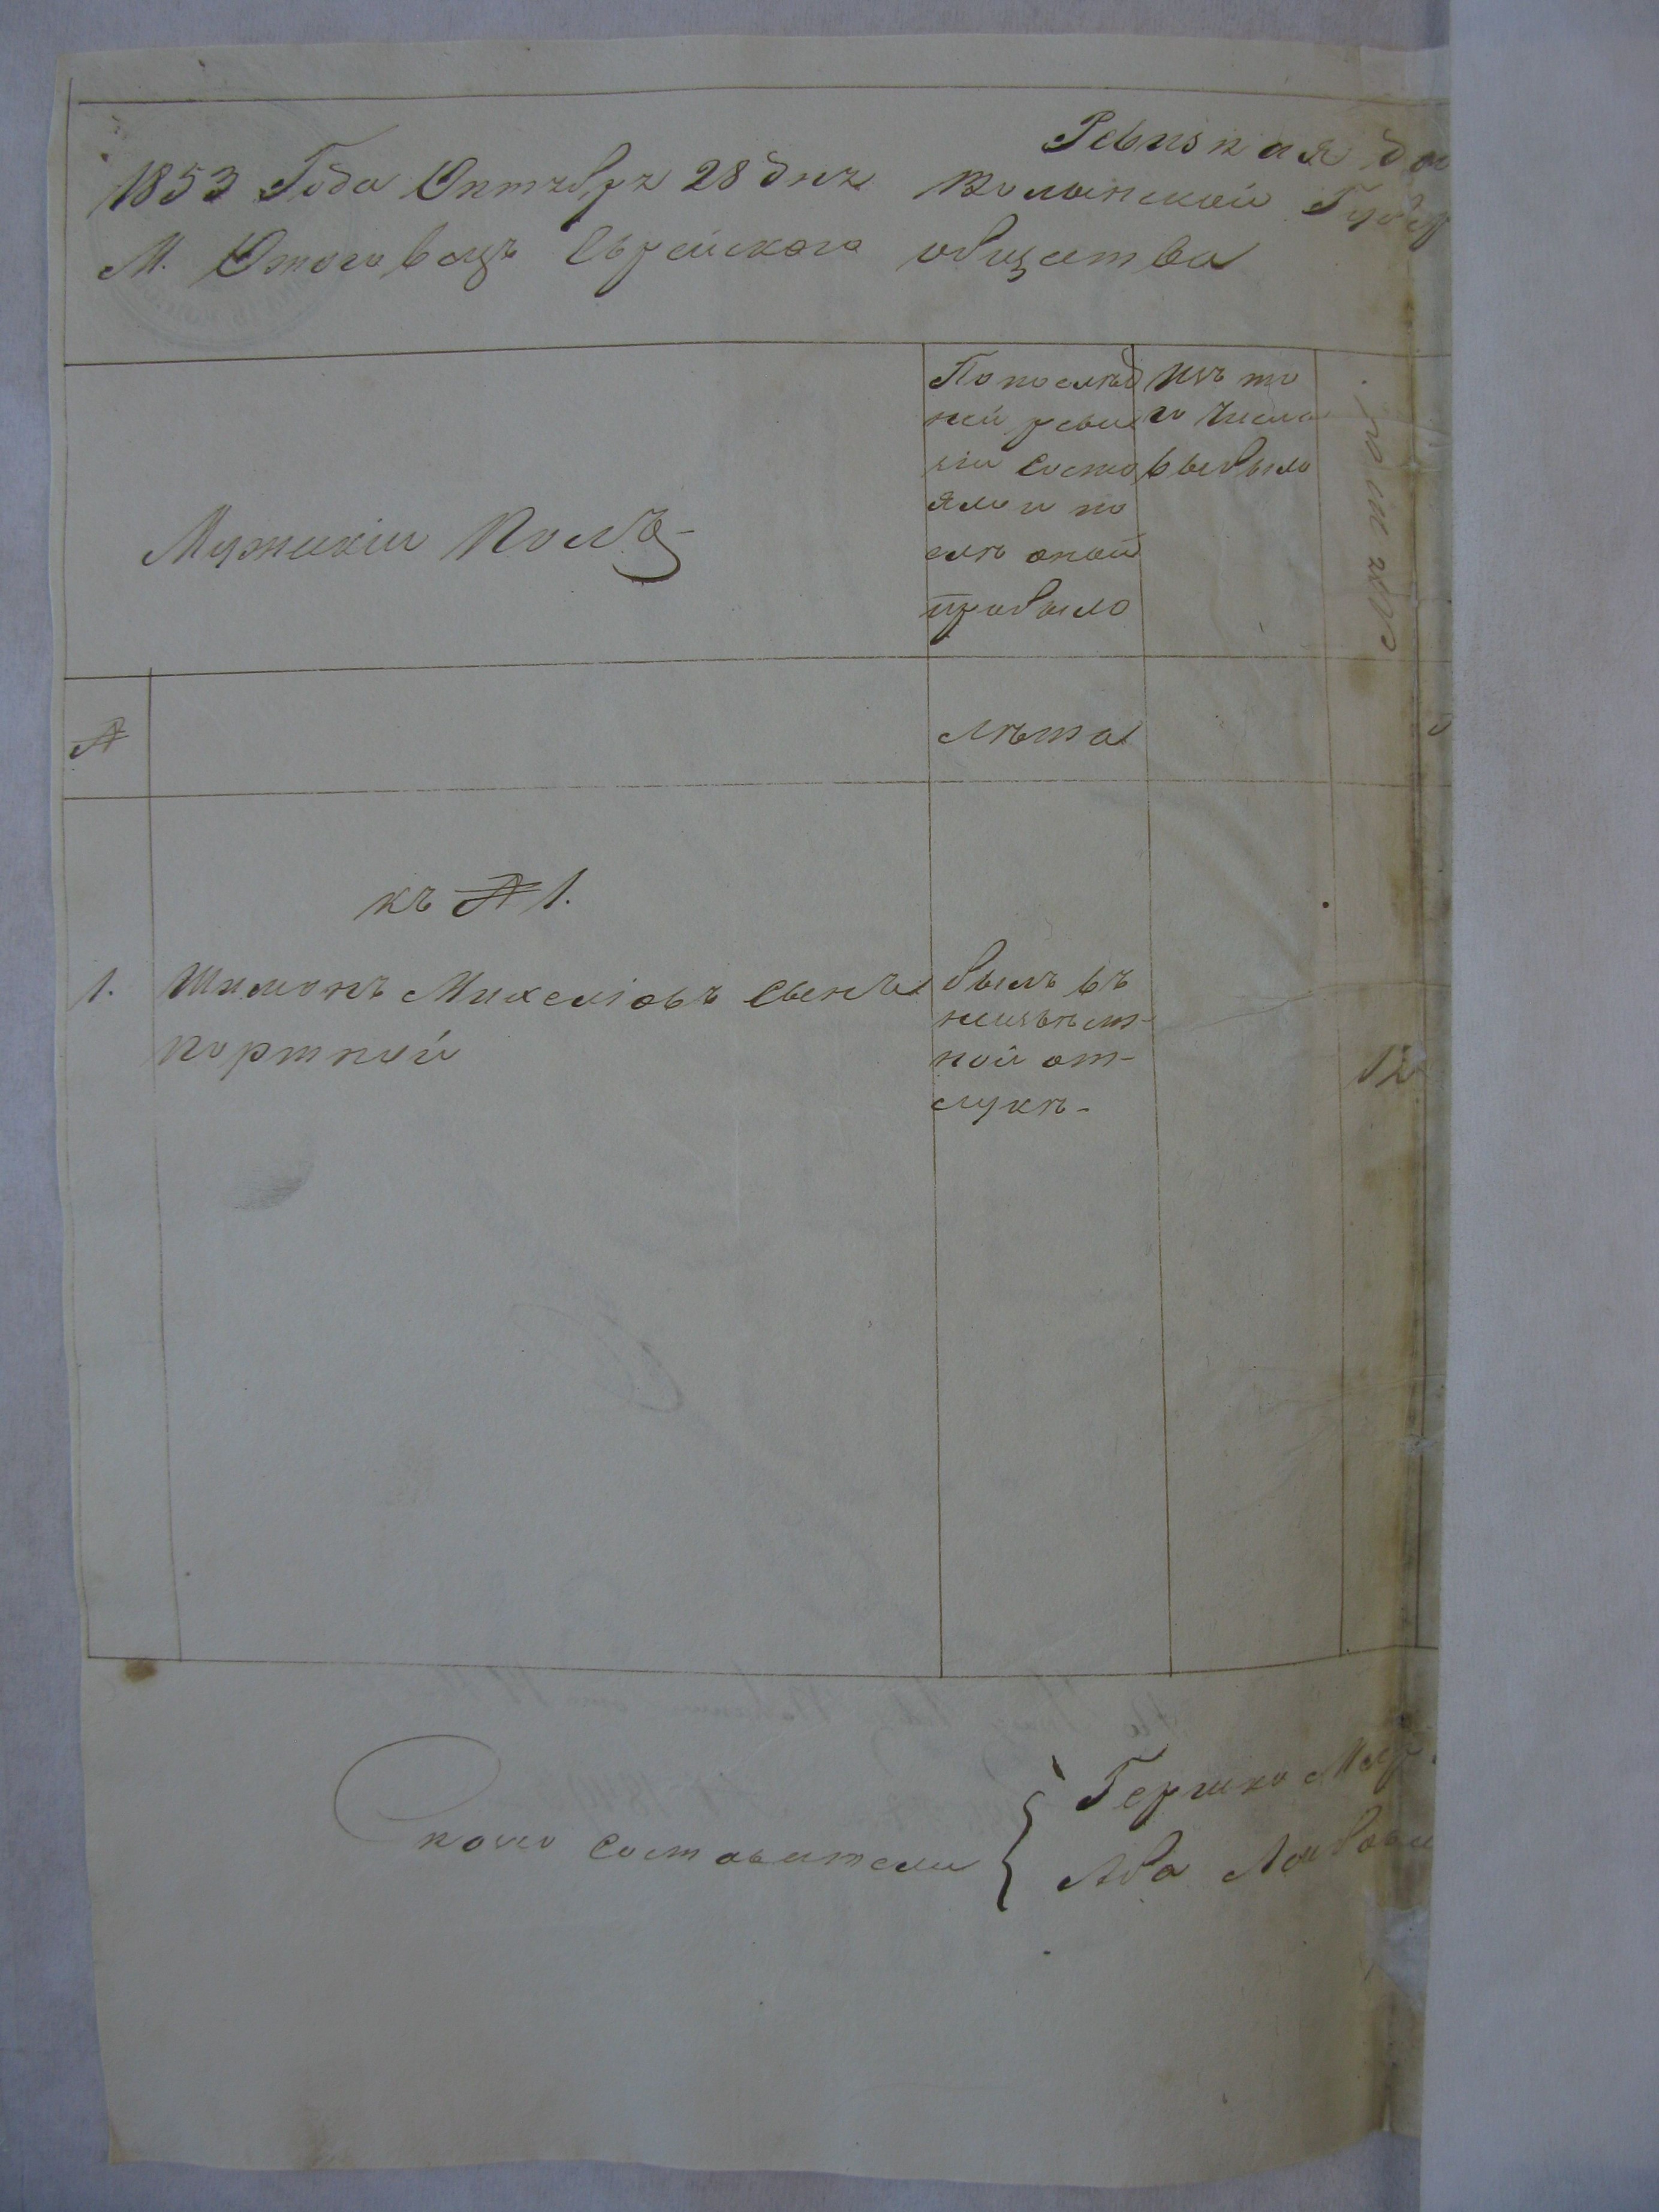 Ревизкая
1853 Года Октября 28 дня Волынской Губер
М. Ютоговецъ Еврейскаго общества
Мужикій Полъ
По послѣд
ней реви
зіи состо
яло и по
слѣ оной
прибыло
Изъ то
го числа
выбыло
Лѣта
№
Лѣта
къ № 1.
1. Шимонъ Михеліовъ сынъ
Портной
былъ въ
неизвѣст-
ной от-
лучкѣ-
12
составители
Гершко
Аба